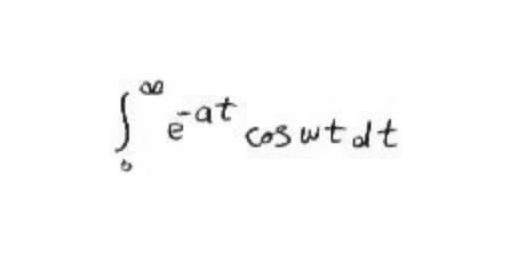 ∫₀^∞ e^{-at} cos ωt dt